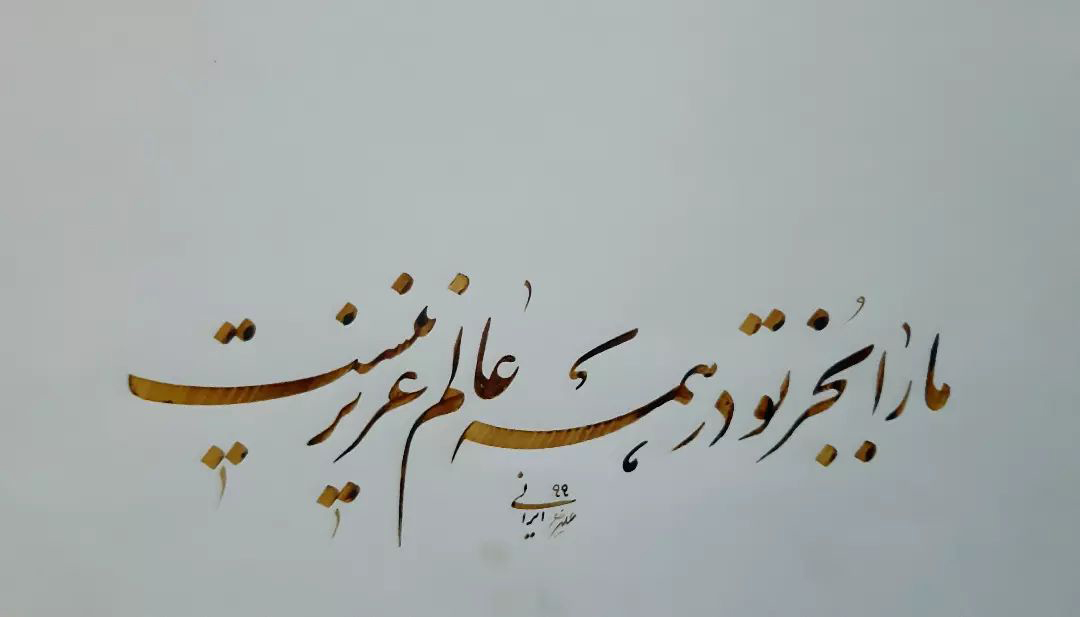 ما را بجز تو در همه عالم عزیز نیست
علیرضا ایرانی ۹۹